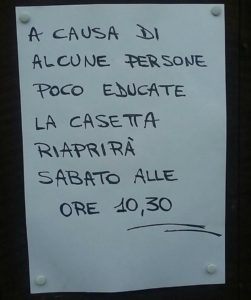 A CAUSA DI
ALCUNE PERSONE
POCO EDUCATE
LA CASETTA
RIAPRIRÀ
SABATO ALLE
ORE 10,30